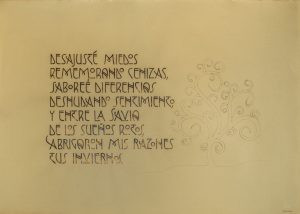 DESAJUSTÉ MIEDOS
REMEMORANDO CENIZAS,
SABOREÉ DIFERENCIAS
DESNUDANDO SENTIMIENTO
Y ENTRE LA SAVIA
DE LOS SUEÑOS ROTOS,
ABRIGARON MIS RAZONES
TUS INVIERNOS.